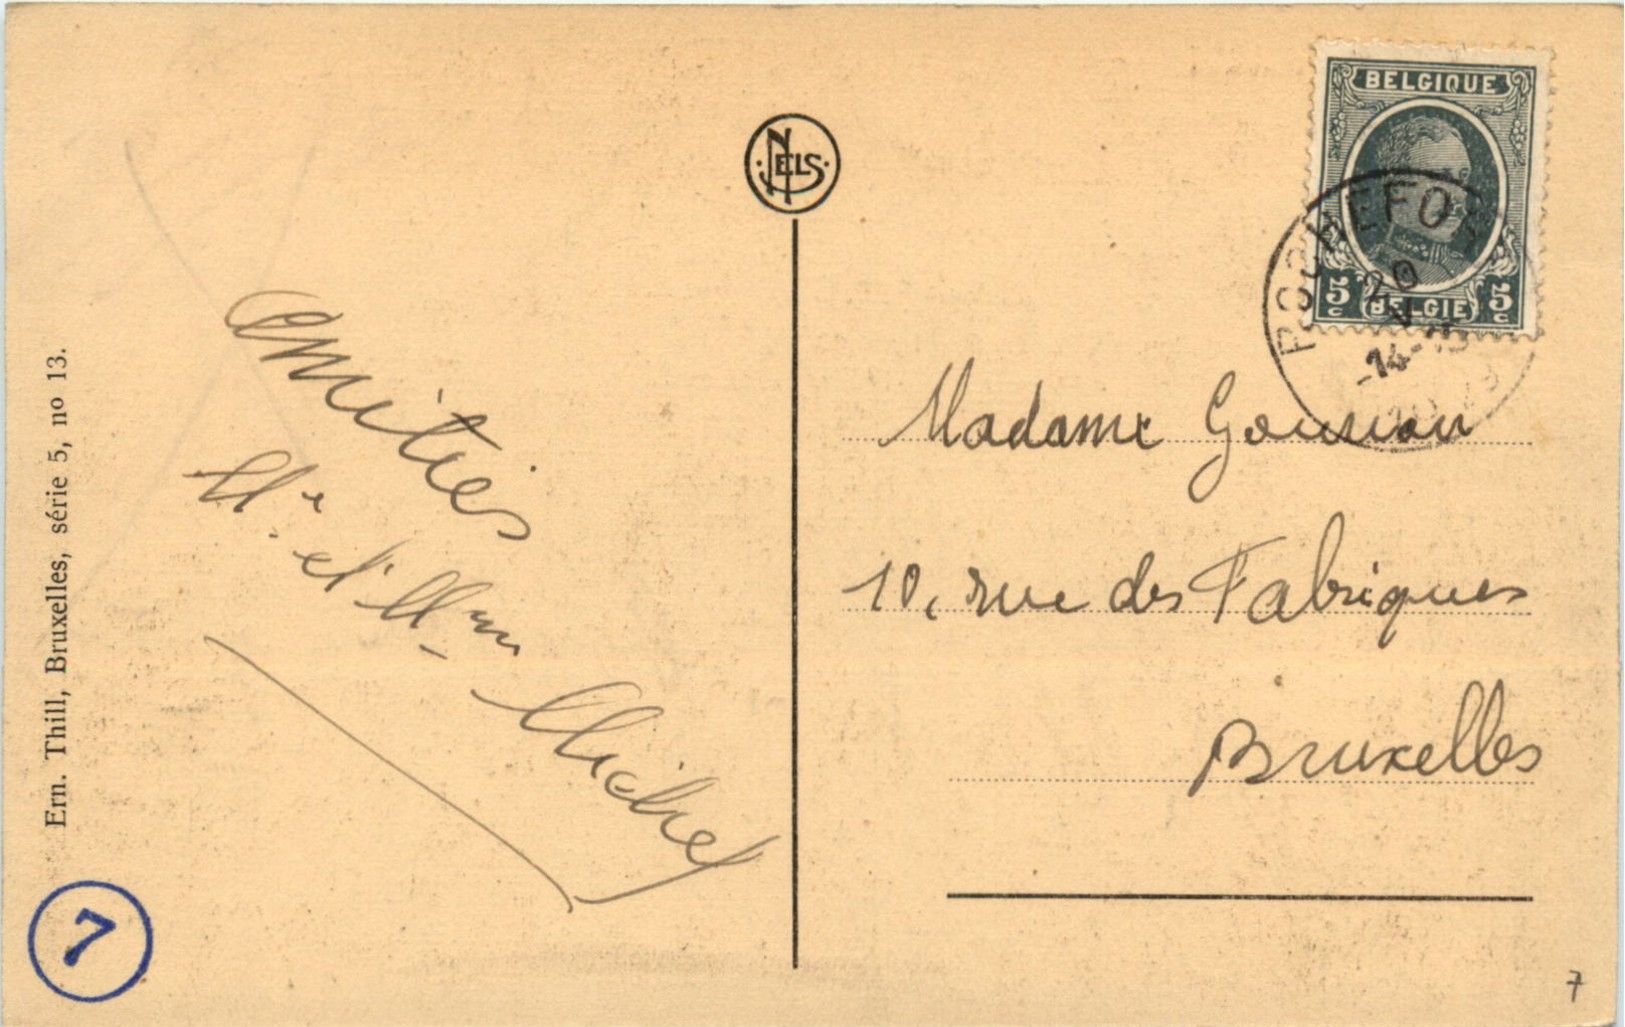 NELS
BELGIQUE
5c BELGIË 5c
ROCHEFO
20
V
-14-15
Amitiés
Mr. et Mme
Michel
Madame
10, rue des Fabriques
Bruxelles
Ern. Thill, Bruxelles, série 5, no 13.
7
7